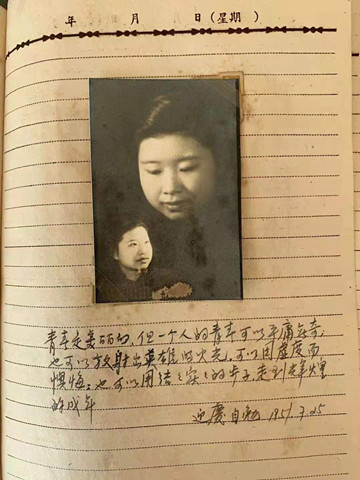 年 月 日(星期 )
青年是美丽的,但一个人的青年可以平庸无奇,
也可以放射出英雄的火光,可以因虚度而
懊悔;也可以用结结实实的步子,走到辉煌
的成年
迎庆自勉 1951.7.25